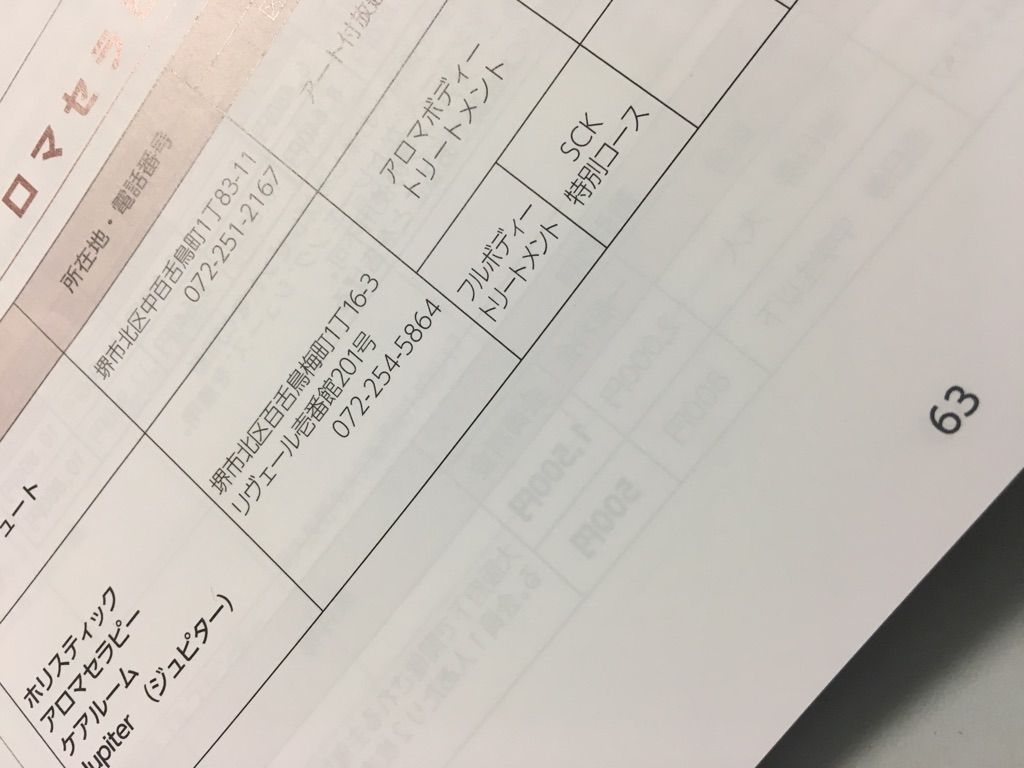 ロマセラ
所在地・電話番号
ュート
堺市北区中百舌鳥町1丁83-11
072-251-2167
アロマボディー
トリートメント
ホリスティック
アロマセラピー
ケアルーム
Jupiter (ジュピター)
堺市北区百舌鳥梅町1丁16-3
リヴェール壱番館201号
072-254-5864
フルボディー
トリートメント
SCK
特別コース
63